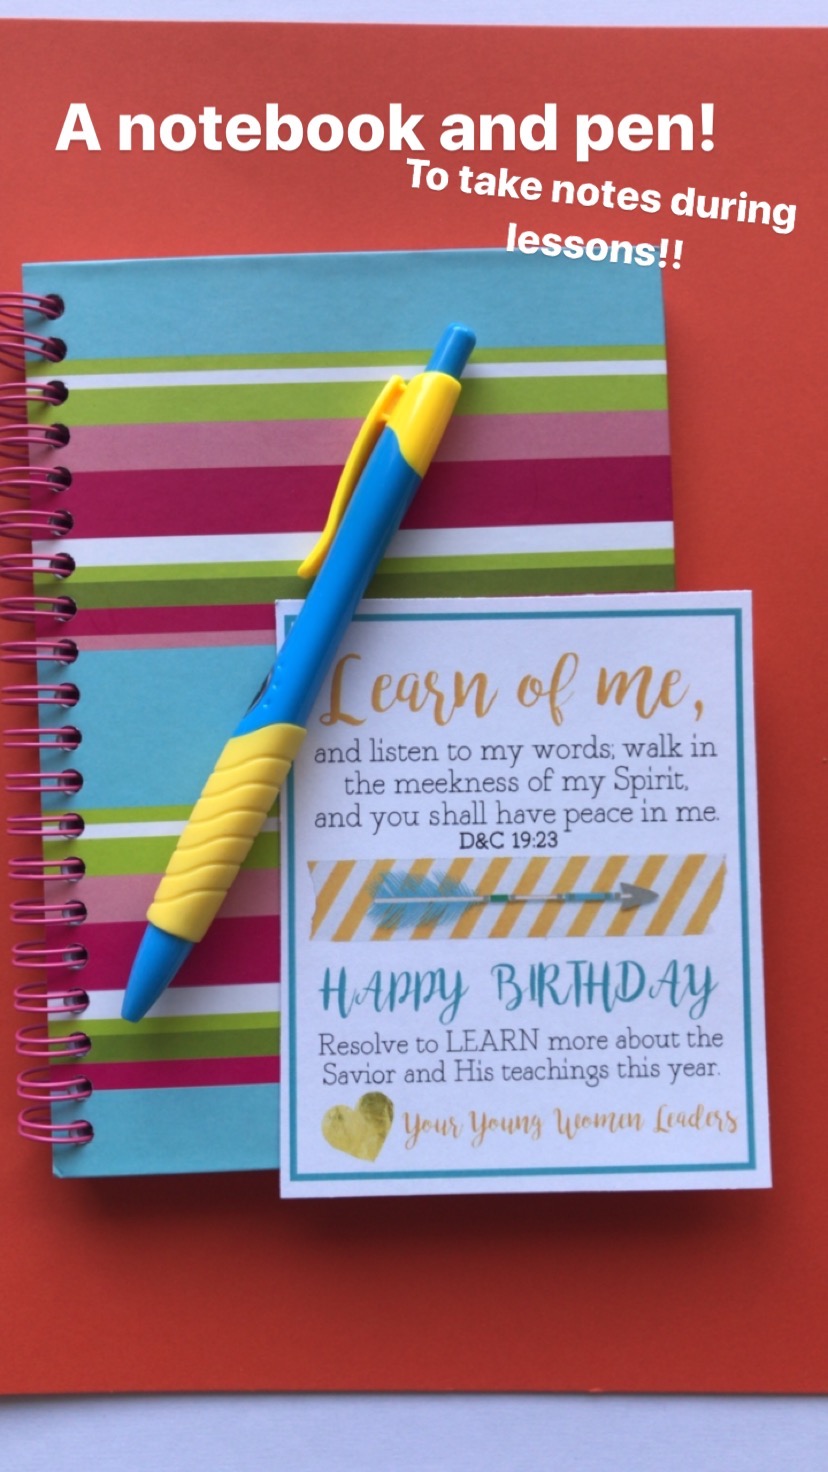 A notebook and pen!
To take notes during
lessons!!
Learn of me,
and listen to my words; walk in
the meekness of my Spirit,
and you shall have peace in me.
D&C 19:23
HAPPY BIRTHDAY
Resolve to LEARN more about the
Savior and His teachings this year.
Your Young Women Leaders